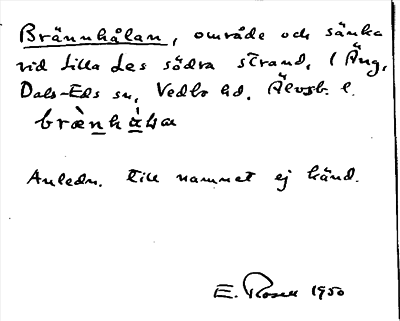 Brännhålan, område och sänka
vid Lilla Les södra strand, i Äng,
Dals-Eds sn, Vedbo hd. Älvsb. l.
bræ̀nhàḷa
Anledn. till namnet ej känd.
E. Rosell 1950